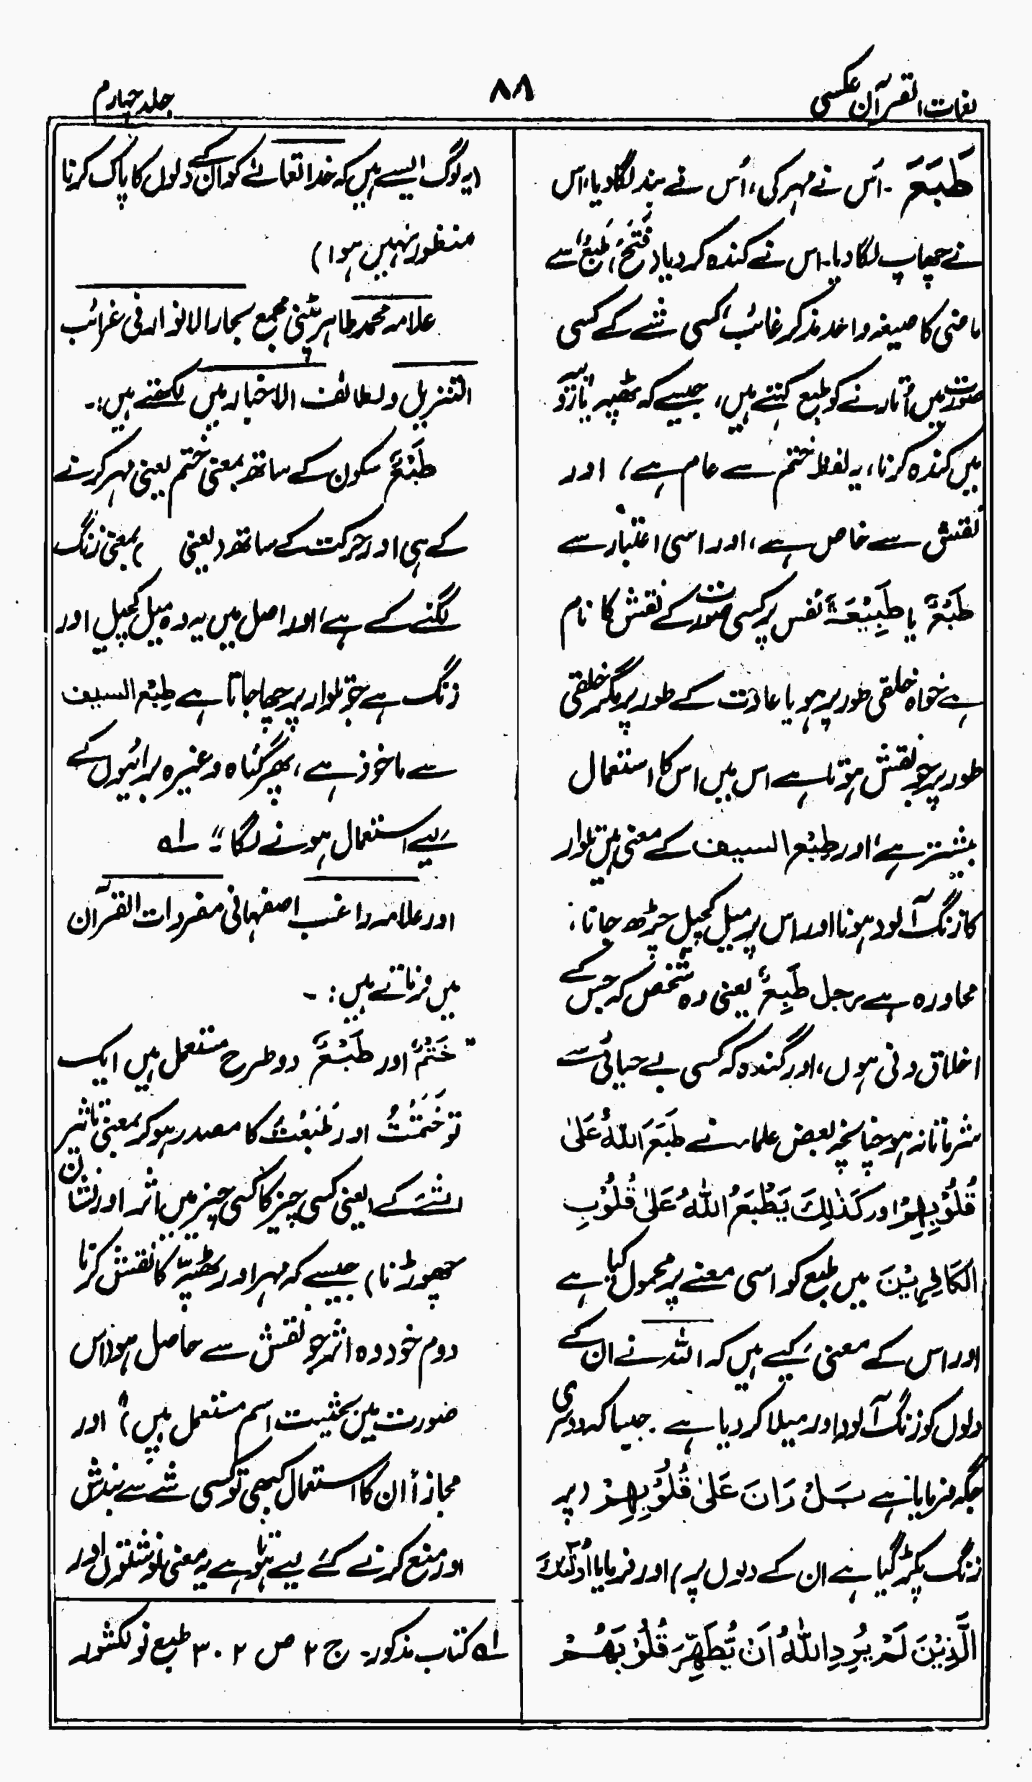 لغات القرآن عکسی
۸۸
جلد چہارم
طَبَعَ ۔ اُس نے مہر کی، اُس نے بند لگا دیا، اس
نے چھاپ لگا دیا۔ اس نے کندہ کر دیا (فَتَحَ) طَبْعٌ سے
ماضی کا صیغہ واحد مذکر غائب، کسی شے کے کسی
صورت میں اُتارنے کو طبع کہتے ہیں، جیسے کہ ٹھپہ یا زر و
میں کندہ کرنا، یہ لفظ ختم سے عام ہے، اور
نقش سے خاص ہے، اور اسی اعتبار سے
طَبْعٌ یا طَبِیْعَۃٌ نفس پر کسی صورت کے نقش کا نام
ہے خواہ خلقی طور پر ہو یا عادت کے طور پر مگر خلقی
طور پر جو نقش ہوتا ہے اس میں اس کا استعمال
بیشتر ہے، اور طبع السیف کے معنی ہیں تلوار
کا زنگ آلود ہونا اور اس پر میل کچیل چڑھ جانا،
محاورہ ہے رجل طَبِعٌ یعنی وہ شخص کہ جس کے
اخلاق دنی ہوں، اور گندہ کہ کسی بے حیائی سے
شرماتا نہ ہو چنانچہ بعض علماء نے طَبَعَ اللّٰہُ عَلٰی
قُلُوْبِہِمْ اور کَذٰلِکَ یَطْبَعُ اللّٰہُ عَلٰی قُلُوْبِ
الْکَافِرِیْنَ میں طبع کو اسی معنے پر محمول کیا ہے
اور اس کے معنی کیے ہیں کہ اللہ نے ان کے
دلوں کو زنگ آلود اور میلا کر دیا ہے۔ جیسا کہ دوسری
جگہ فرمایا ہے بَلْ رَانَ عَلٰی قُلُوْبِہِمْ (پر
زنگ پکڑ گیا ہے ان کے دلوں پر) اور فرمایا اُولٰٓئِکَ
الَّذِیْنَ لَمْ یُرِدِ اللّٰہُ اَنْ یُّطَہِّرَ قُلُوْبَہُمْ
(یہ لوگ ایسے ہیں کہ خدا تعالےٰ کو ان کے دلوں کا پاک کرنا
منظور نہیں ہوا)
علامہ محمد طاہر پٹنی مجمع بحار الانوار فی غرائب
التنزیل و لطائف الاخبار میں لکھتے ہیں:۔
طَبْعٌ سکون کے ساتھ بمعنی ختم یعنی مہر کرنے
کے ہی اور حرکت کے ساتھ (یعنی ) بمعنی زنگ
لگنے کے ہے، اور اصل میں یہ وہ میل کچیل اور
زنگ ہے جو تلوار پر چھا جاتا ہے طبع السیف
سے ماخوذ ہے، پھر گناہ وغیرہ برائیوں کے
لیے استعمال ہونے لگا“۔ لہ
اور علامہ راغب اصفہانی مفردات القرآن
میں فرماتے ہیں:۔
”خَتْمٌ اور طَبْعٌ دو طرح مستعمل ہیں ایک
تو خَتَمْتُ اور طَبَعْتُ کا مصدر ہو کر بمعنی تاثیر
الشئے کے (یعنی کسی چیز کا کسی چیز میں اثر اور نشان
چھوڑنا) جیسے کہ مہر اور ٹھپہ کا نقش کرنا
دوم خود وہ اثر جو نقش سے حاصل ہو (اس
صورت میں بحثیت اسم مستعمل ہیں) اور
مجازاً ان کا استعمال کبھی تو کسی شے سے بندش
اور منع کرنے کے لیے ہوتا ہے یہ معنی نوشتوں اور
لہ کتاب مذکور۔ ج ۲ ص ۳۰۲ طبع نولکشور